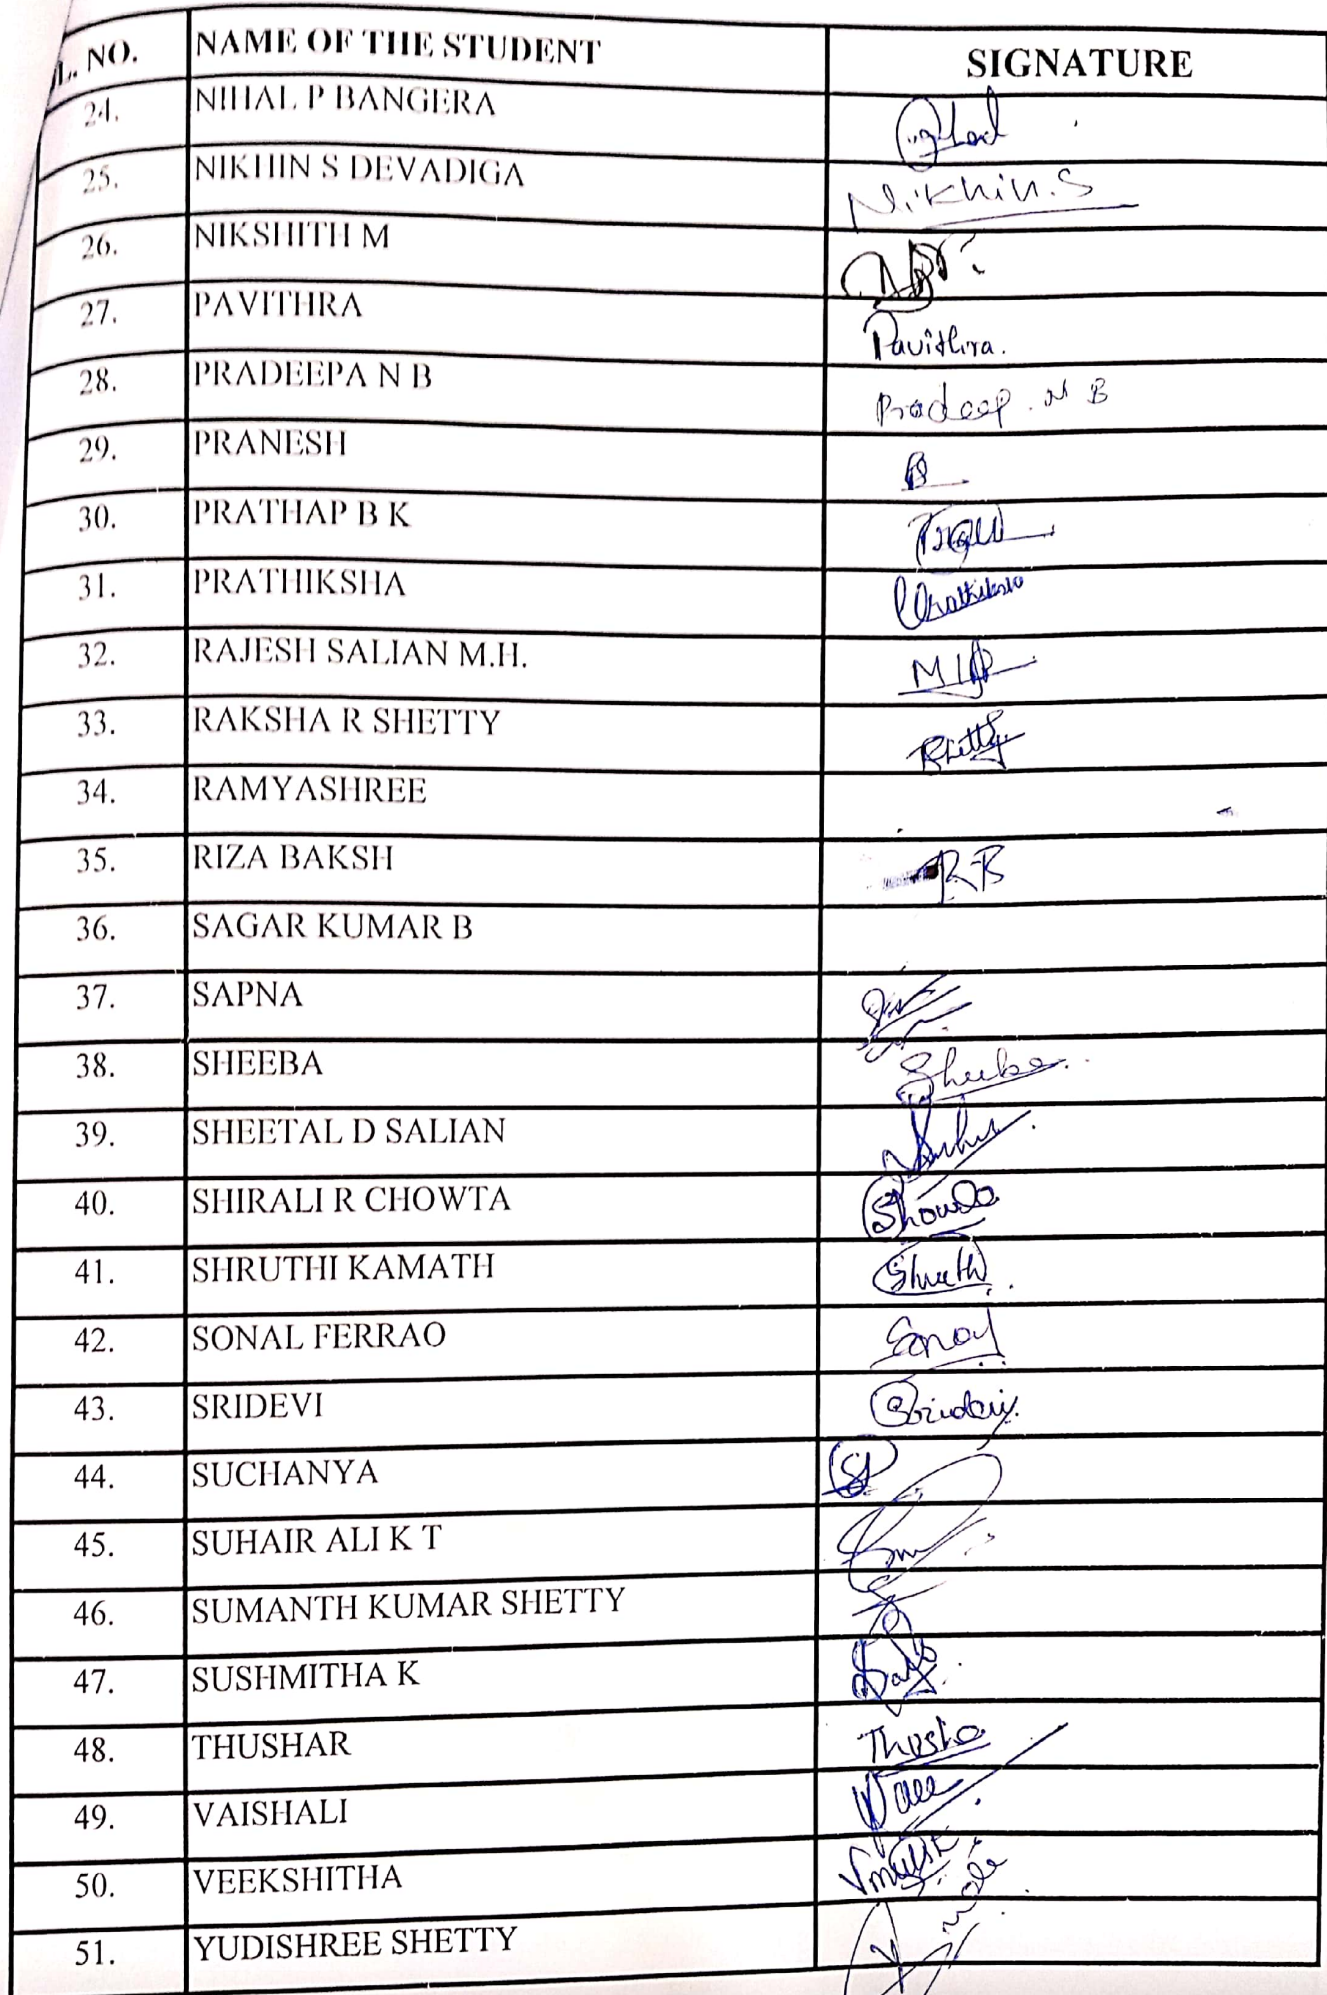 L. NO. NAME OF THE STUDENT SIGNATURE
24. NIHAL P BANGERA
25. NIKHIN S DEVADIGA Nikhin.S
26. NIKSHITH M
27. PAVITHRA Pavithra.
28. PRADEEPA N B Pradeep. N B
29. PRANESH
30. PRATHAP B K
31. PRATHIKSHA Prathiksha
32. RAJESH SALIAN M.H.
33. RAKSHA R SHETTY
34. RAMYASHREE
35. RIZA BAKSH RB
36. SAGAR KUMAR B
37. SAPNA
38. SHEEBA Sheeba
39. SHEETAL D SALIAN
40. SHIRALI R CHOWTA
41. SHRUTHI KAMATH
42. SONAL FERRAO Sonal
43. SRIDEVI
44. SUCHANYA
45. SUHAIR ALI K T
46. SUMANTH KUMAR SHETTY
47. SUSHMITHA K
48. THUSHAR
49. VAISHALI
50. VEEKSHITHA
51. YUDISHREE SHETTY